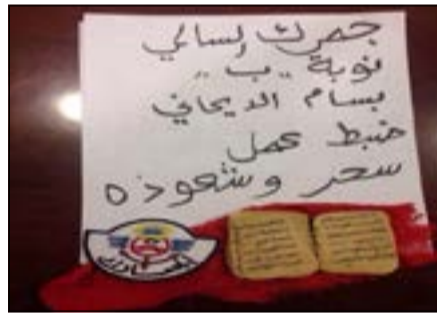 جمرك السالمي
نوبة "ب"
بسام الديحاني
ضبط عمل
سحر وشعوذه